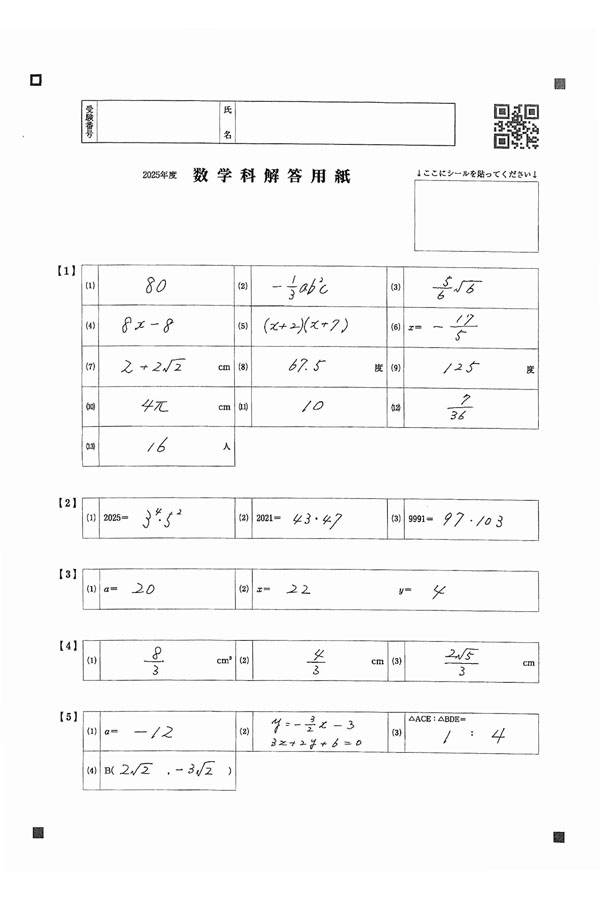 受験番号
氏名
2025年度 数学科解答用紙
↓ここにシールを貼ってください↓
【1】
(1) 80 (2) -1/3 ab²c (3) 5/6 √6
(4) 8x-8 (5) (x+2)(x+7) (6) x= -17/5
(7) 2+2√2 cm (8) 67.5 度 (9) 125 度
(10) 4π cm (11) 10 (12) 7/36
(13) 16 人
【2】
(1) 2025= 3⁴·5² (2) 2021= 43·47 (3) 9991= 97·103
【3】
(1) a= 20 (2) x= 22 y= 4
【4】
(1) 8/3 cm³ (2) 4/3 cm (3) 2√5/3 cm
【5】
(1) a= -12 (2) y=-3/2 x-3
3x+2y+6=0
(3) △ACE:△BDE=
1 : 4
(4) B( 2√2 , -3√2 )